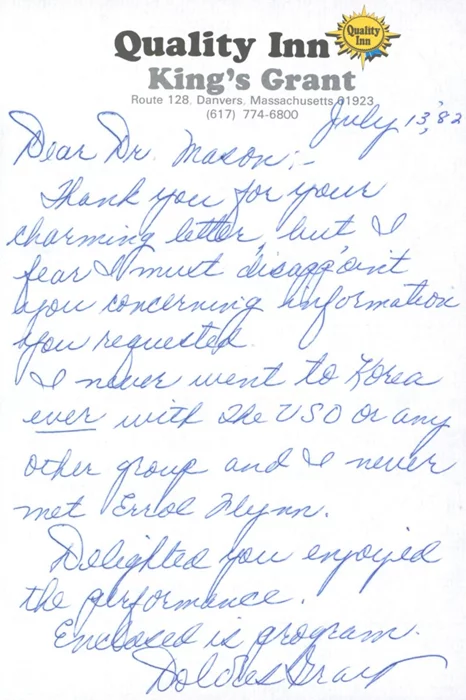 Quality Inn
Quality
Inn
King's Grant
Route 128, Danvers, Massachusetts 01923
(617) 774-6800
July 13, '82
Dear Dr. Mason:-
Thank you for your
charming letter, but I
fear I must disappoint
you concerning information
you requested.
I never went to Korea
ever with the USO or any
other group and I never
met Errol Flynn.
Delighted you enjoyed
the performance.
Enclosed is program.
Dolores Gray